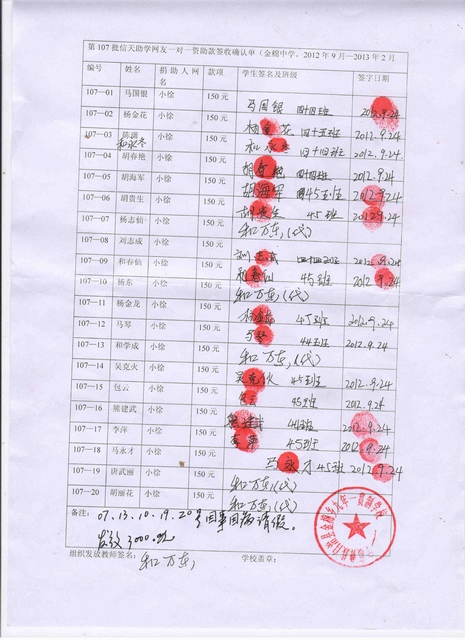 第107批信天助学网友一对一资助款签收确认单（金棉中学，2012年9月—2013年2月
编号 姓名 捐助人网名 款项 学生签名及班级 签字日期
107—01 马国银 小徐 150元 马国银 四十四班 2012.9.24
107—02 杨金花 小徐 150元 杨金花 四十五班 2012.9.24
107—03 陈潇 和永冬 小徐 150元 和永冬 四十四班 2012.9.24
107—04 胡春艳 小徐 150元 胡春艳 四十四班 2012.9.24
107—05 胡海军 小徐 150元 胡海军 四45班 2012.9.24
107—06 胡贵生 小徐 150元 胡贵生 45班 2012.9.24
107—07 杨志仙 小徐 150元 和万东（代）
107—08 刘志成 小徐 150元 刘志成 2012.9.24
107—09 和春仙 小徐 150元 和春仙 45班 2012.9.24
107—10 杨东 小徐 150元 和万东（代）
107—11 杨金龙 小徐 150元 杨金龙 45班 2012.9.24
107—12 马琴 小徐 150元 马琴 44班 2012.9.24
107—13 和学成 小徐 150元 和万东（代）
107—14 吴克火 小徐 150元 吴克火 45班 2012.9.24
107—15 包云 小徐 150元 包云 45班 2012.9.24
107—16 熊建武 小徐 150元 熊建武 44班 2012.9.24
107—17 李萍 小徐 150元 李萍 45班 2012.9.24
107—18 马永才 小徐 150元 马永才 45班 2012.9.24
107—19 唐武丽 小徐 150元 和万东（代）
107—20 胡丽花 小徐 150元 和万东（代）
备注： 07.13.10.19.20号因事因病请假。
发放3000.元
组织发放教师签名： 和万东 学校盖章：
金棉乡九年一贯制学校